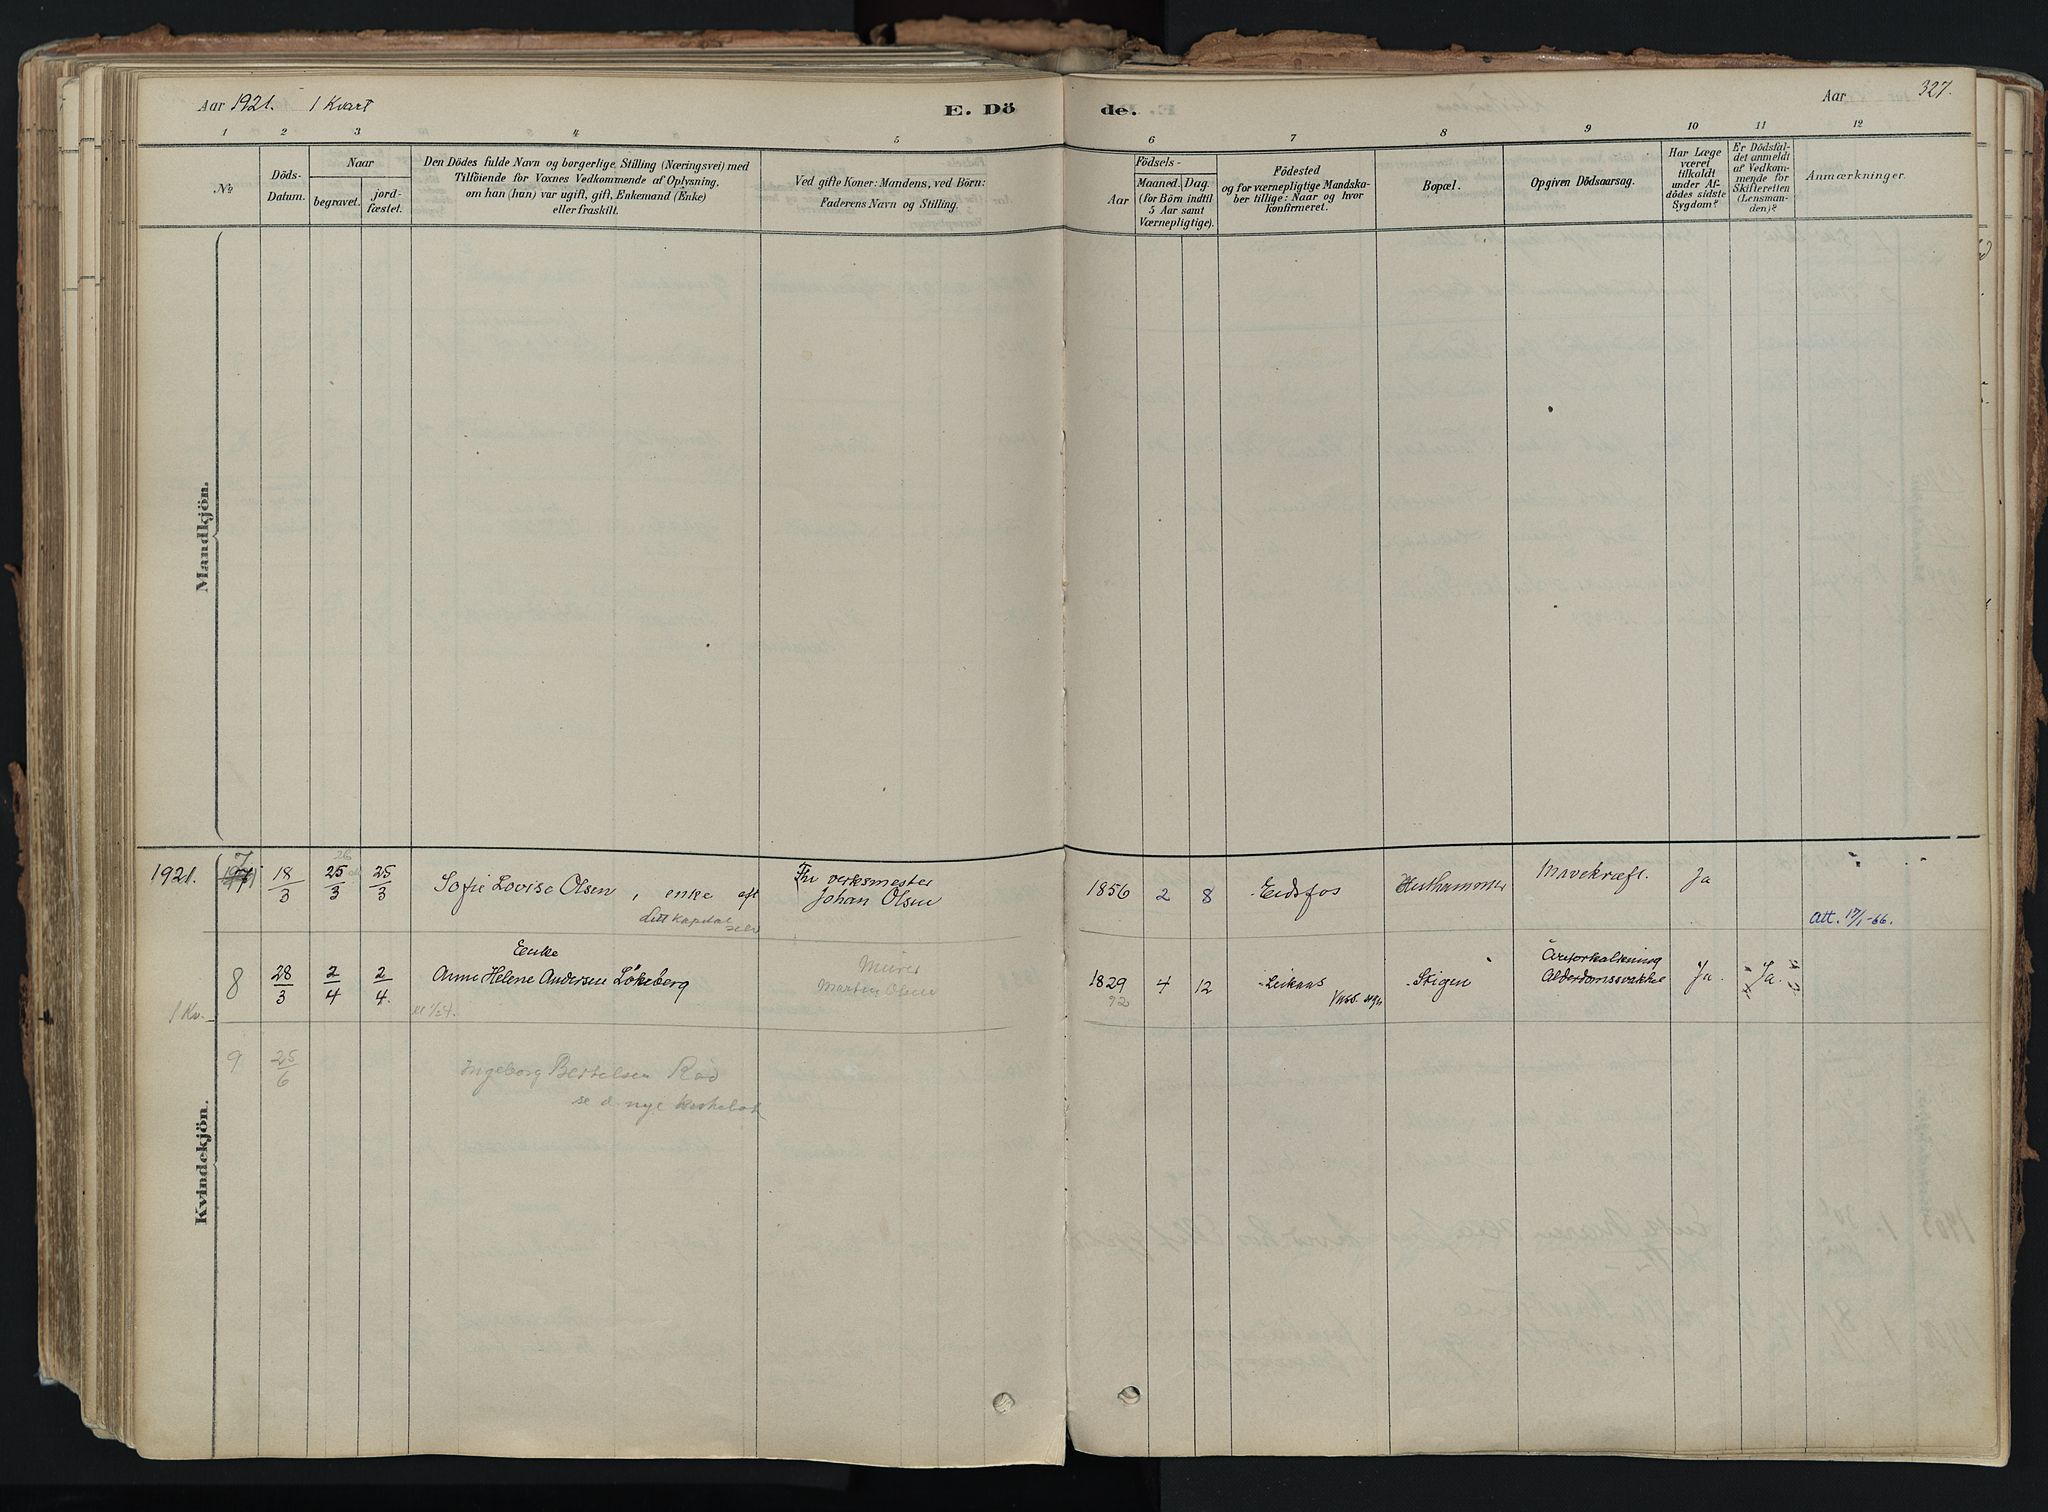 Aar 1921. 1 Kvart
E. Dö
de.
Aar
327.
1 2 3 4 5
6 7 8 9 10 11 12
No
Döds-
Datum.
Naar
begravet.
jord-
fæstet.
Den Dödes fulde Navn og borgerlige Stilling (Næringsvei) med
Tilföiende for Voxnes Vedkommende af Oplysning,
om han (hun) var ugift, gift, Enkemand (Enke)
eller fraskilt.
Ved gifte Koner: Mandens, ved Börn:
Faderens Navn og Stilling.
Aar
Födsels-
Maaned. Dag.
(for Börn indtil
5 Aar samt
Værnepligtige).
Födested
og for værnepligtige Mandska-
ber tillige: Naar og hvor
konfirmeret.
Bopæl.
Opgiven Dödsaarsag.
Har Læge
været
tilkaldt
under Af-
dödes sidste
Sygdom?
Er Dödsfal-
det anmeldt
af Vedkom-
mende for
Skifteretten
(Lensman-
den)?
Anmærkninger.
Mandkjön.
1921.
7 18/3 25/3 25/3 Sofie Lovise Olsen, enke eft Fhv verksmester
Johan Olsen
1856 2 8 Eidsfos Mavekræft. Ja
26
litt kapital
selv
Att. 17/1-66.
Enke
8 28/3 2/4 2/4. Anne Helene Andersen Lökeberg
Murer
Martin Olsen
1829 4 12 Stigen Ja. Ja.
92
Aareforkalkning
Alderdomssvakhet
1 Kv.
9 25/6 Ingeborg Bertelsen Rød
se d. nye kirkebok
Kvindekjön.